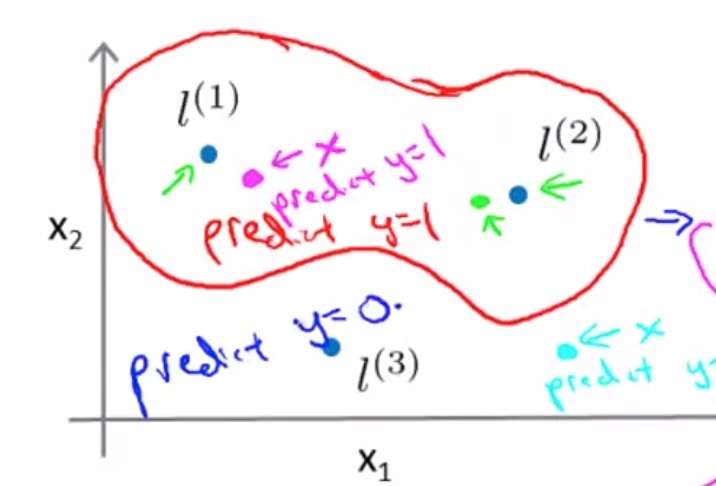 l^{(1)}
l^{(2)}
x
predict y=1
predict y=1
x_2
predict y=0.
l^{(3)}
x
predict y=
x_1